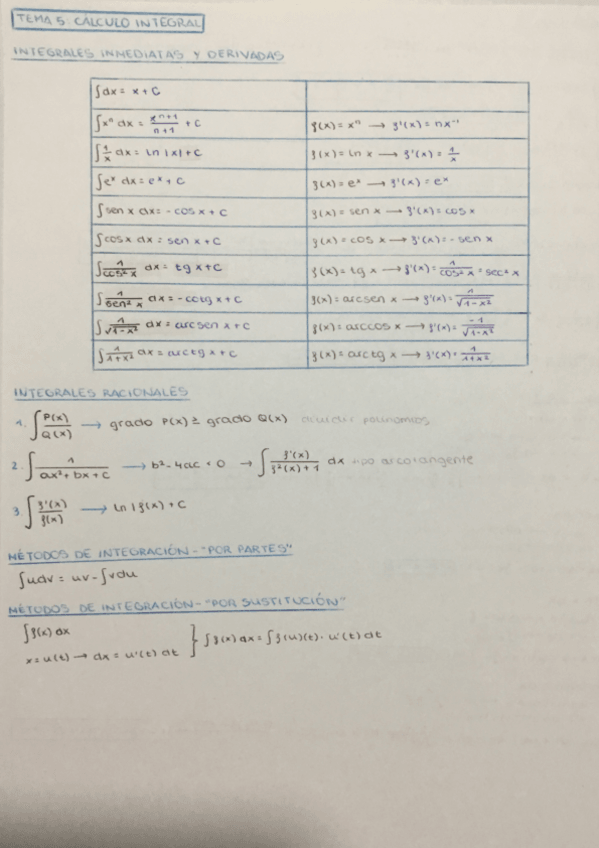 TEMA 5: CÁLCULO INTEGRAL
INTEGRALES INMEDIATAS Y DERIVADAS
∫dx = x + C
∫xⁿ dx = xⁿ⁺¹/n+1 + C    f(x) = xⁿ → f'(x) = nx⁻¹
∫1/x dx = ln |x| + C    f(x) = ln x → f'(x) = 1/x
∫eˣ dx = eˣ + C    f(x) = eˣ → f'(x) = eˣ
∫sen x dx = - cos x + C    f(x) = sen x → f'(x) = cos x
∫cos x dx = sen x + C    f(x) = cos x → f'(x) = - sen x
∫1/cos² x dx = tg x + C    f(x) = tg x → f'(x) = 1/cos² x = sec² x
∫1/sen² x dx = - cotg x + C    f(x) = arcsen x → f'(x) = 1/√1-x²
∫1/√1-x² dx = arcsen x + C    f(x) = arccos x → f'(x) = -1/√1-x²
∫1/1+x² dx = arctg x + C    f(x) = arctg x → f'(x) = 1/1+x²
INTEGRALES RACIONALES
1. ∫P(x)/Q(x) → grado P(x) ≥ grado Q(x) polinomios
2. ∫1/ax²+bx+c → b² - 4ac < 0 → ∫f'(x)/f²(x)+1 dx tipo arcotangente
3. ∫f'(x)/f(x) → ln |f(x) + C
MÉTODOS DE INTEGRACIÓN - "POR PARTES"
∫udv = uv - ∫vdu
MÉTODOS DE INTEGRACIÓN - "POR SUSTITUCIÓN"
∫f(x) dx
x = u(t) → dx = u'(t) dt } ∫f(x) dx = ∫f(u)(t) · u'(t) dt